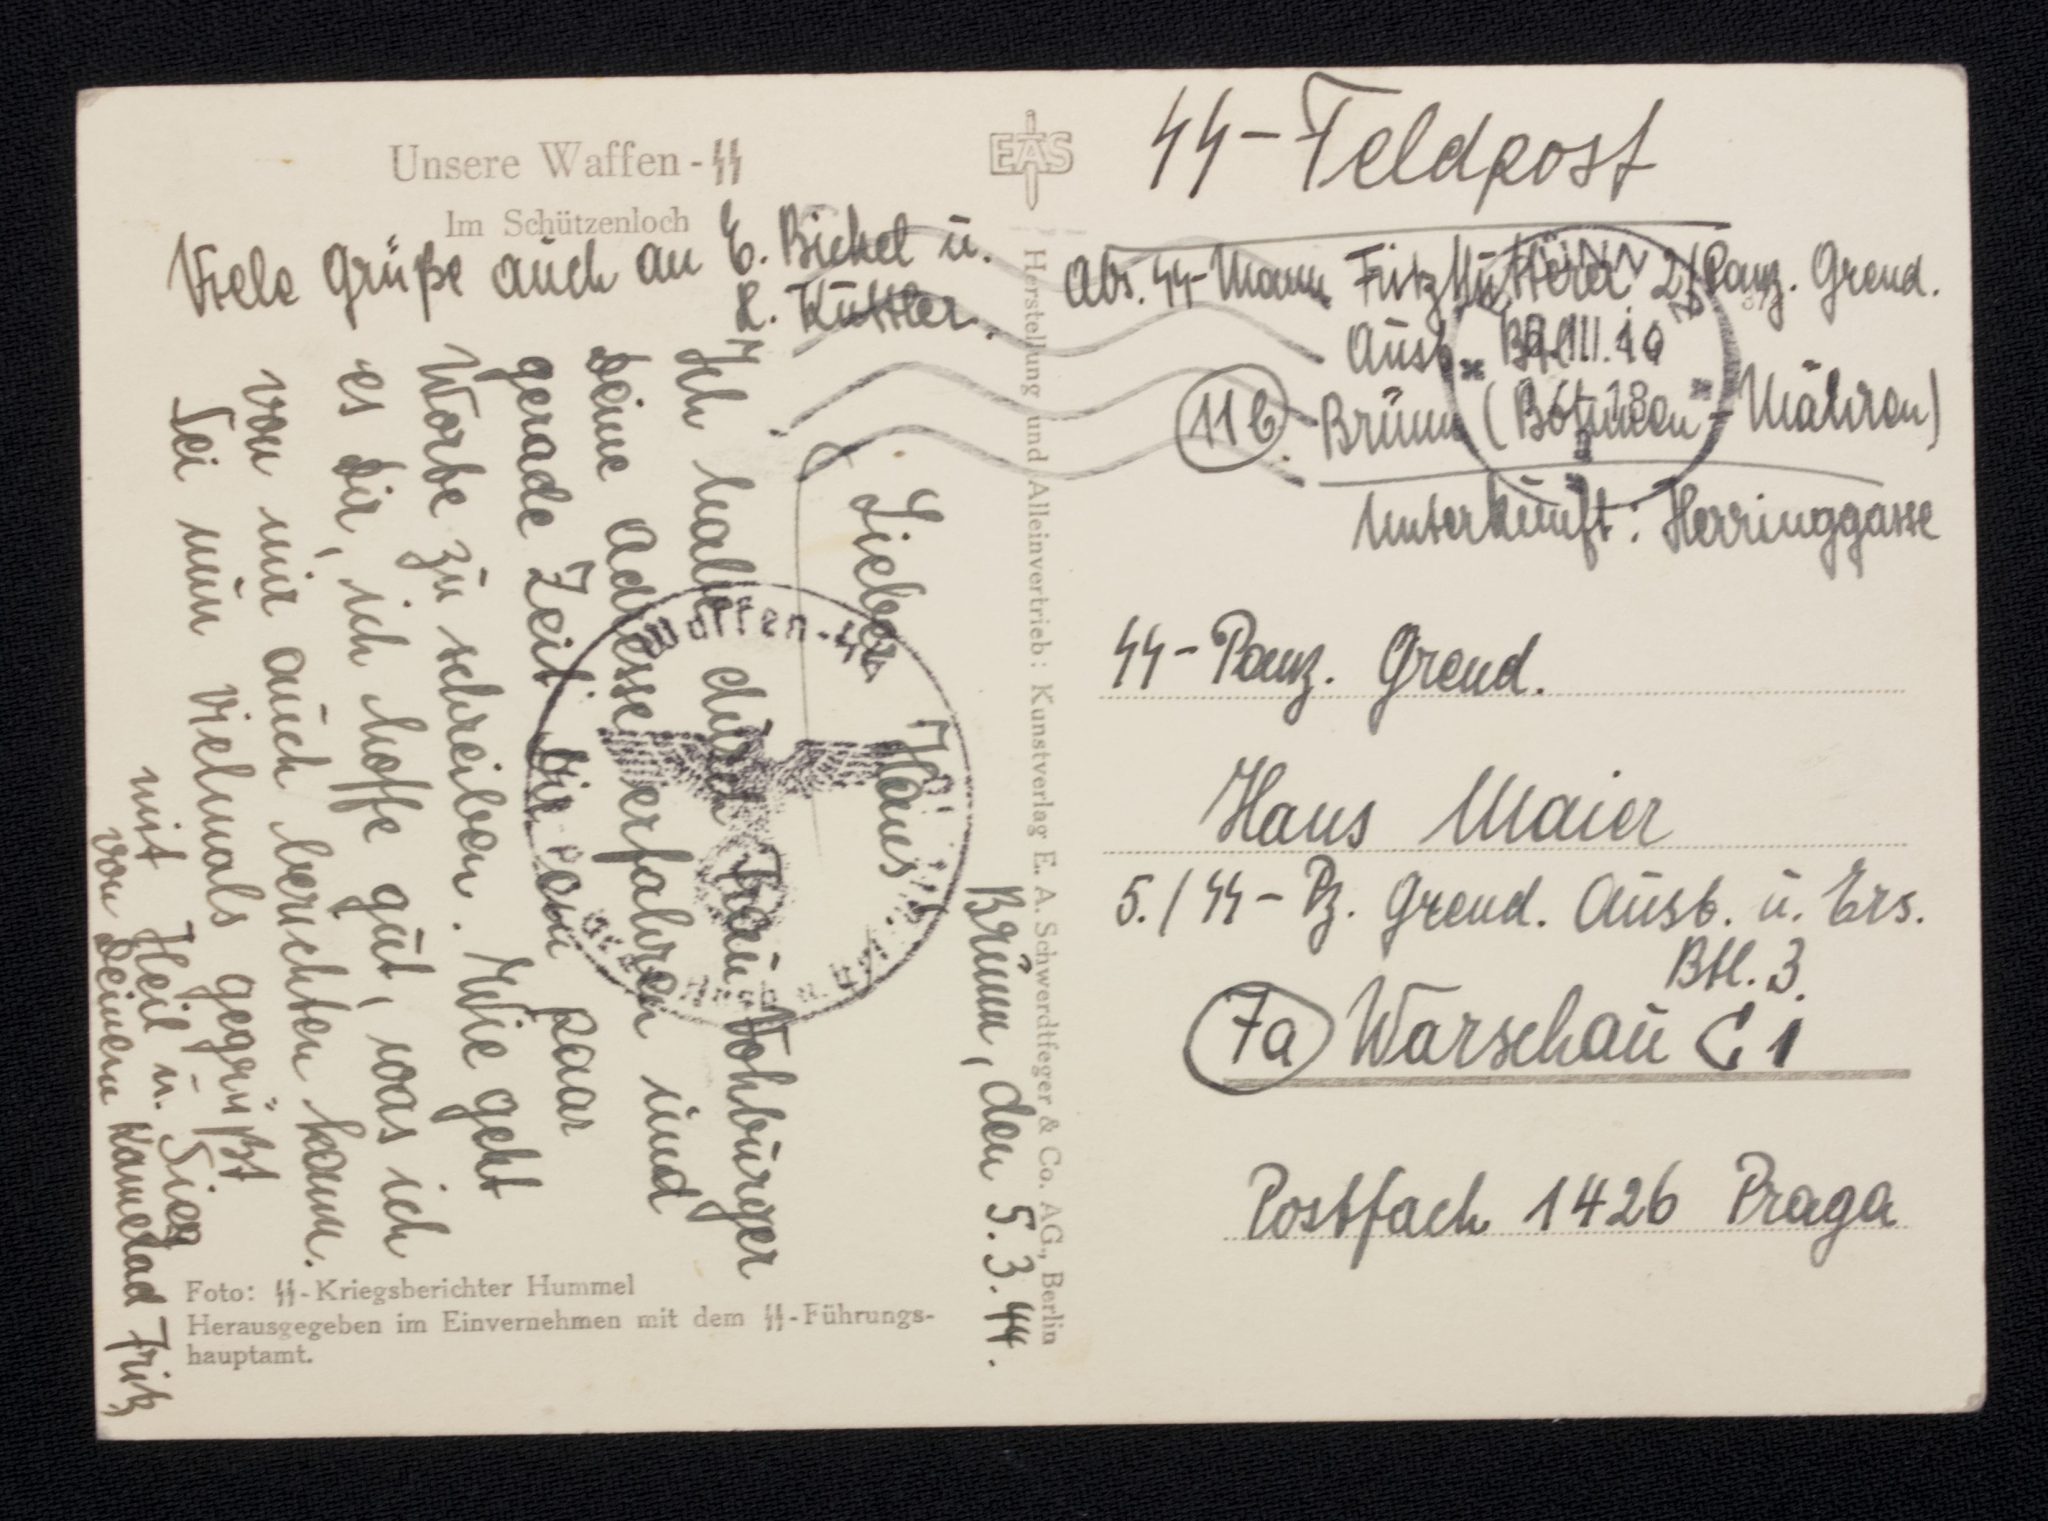 Unsere Waffen-SS
Im Schützenloch
Viele Grüße auch an E. Bickel u.
K. Kuttler.
EAS
Herstellung und Alleinvertrieb: Kunstverlag E. A. Schwerdtfeger & Co. AG., Berlin
Brünn, den 5.3.44.
Lieber Hans
Ich habe durch Frau Vohburger
Deine Adresse erfahren und
gerade Zeit Dir ein paar
Worte zu schreiben. Wie geht
es Dir, ich hoffe gut, was ich
von mir auch berichten kann.
Sei nun vielmals gegrüßt
mit Heil u. Sieg
von Deinem Kamerad Fritz
Waffen-SS
Foto: SS-Kriegsberichter Hummel
Herausgegeben im Einvernehmen mit dem SS-Führungs-
hauptamt.
SS-Feldpost
Abs. SS-Mann Fritz 2/Panz. Grend.
Ausb. Btl.
11b. Brünn (Böhmen-Mähren)
Unterkunft: Herringgasse
SS-Panz. Grend.
Hans Maier
5./SS-Pz. Grend. Ausb. u. Ers.
Btl. 3.
7a Warschau C 1
Postfach 1426 Praga